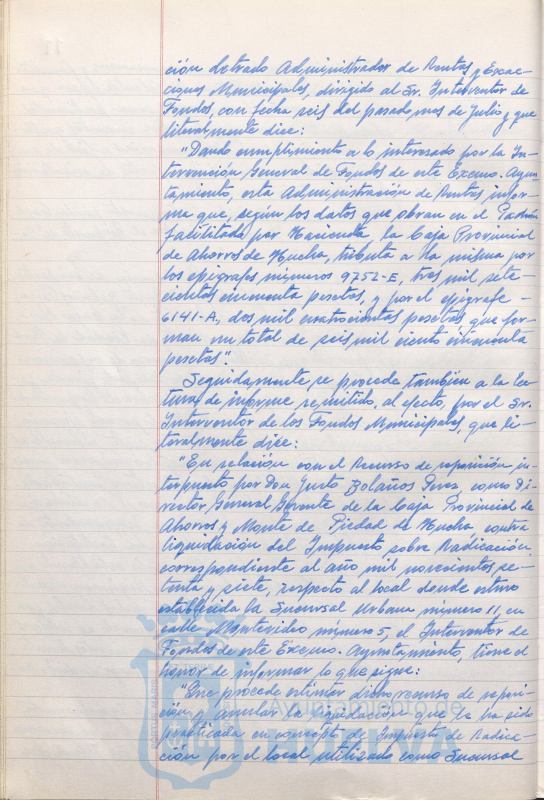 ción Letrado Administrador de Rentas y Exac-
ciones Municipales, dirigido al Sr. Interventor de
Fondos, con fecha seis del pasado mes de Julio y que
literalmente dice:
"Dando cumplimiento a lo interesado por la In-
tervención General de Fondos de este Excmo. Ayun-
tamiento, esta Administración de Rentas infor-
ma que, según los datos que obran en el Padrón
facilitado por Hacienda, la Caja Provincial
de Ahorros de Huelva, tributa a la misma por
los epígrafes números 9752-E, tres mil sete-
cientas cincuenta pesetas, y por el epígrafe -
6141-A, dos mil cuatrocientas pesetas, que for-
man un total de seis mil ciento cincuenta
pesetas".
Seguidamente se procede también a la lec-
tura de informe remitido, al efecto, por el Sr.
Interventor de los Fondos Municipales, que li-
teralmente dice:
"En relación con el Recurso de reposición in-
terpuesto por Don Justo Bolaños Perez como Di-
rector General Gerente de la Caja Provincial de
Ahorros y Monte de Piedad de Huelva contra
liquidación del Impuesto sobre Radicación,
correspondiente al año mil novecientos se-
tenta y siete, respecto al local donde estuvo
establecida la Sucursal Urbana número 11, en
calle Montevideo número 5, el Interventor de
Fondos de este Excmo. Ayuntamiento, tiene el
honor de informar lo que sigue:
"Que procede estimar dicho recurso de reposi-
ción y anular la liquidación que le ha sido
practicada en concepto de Impuesto de Radica-
ción por el local utilizado como Sucursal
Ayuntamiento de
HUELVA